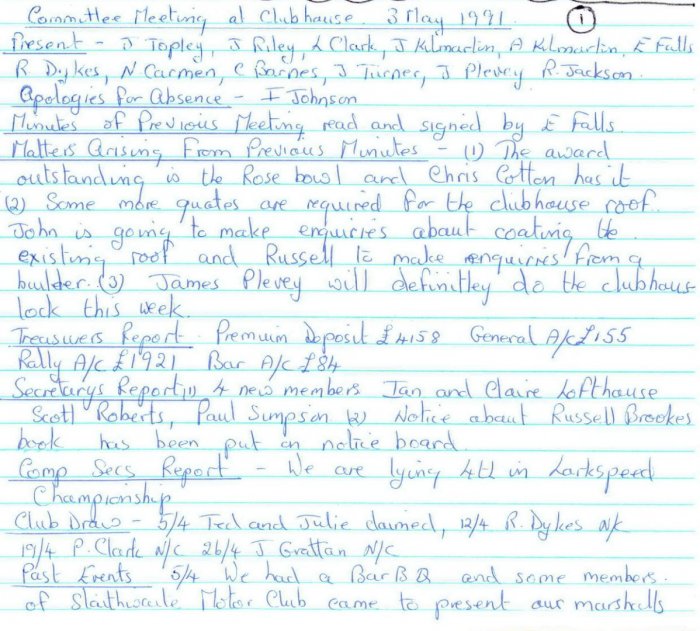 Committee Meeting at Clubhouse. 3 May 1991. 1
Present - J Topley, J Riley, L Clark, J Kilmartin, A Kilmartin, E Falls
R Dykes, N Carmen, C Barnes, J Turner, J Plevey R. Jackson.
Apologies for Absence - I Johnson
Minutes of Previous Meeting read and signed by E Falls.
Matters Arising From Previous Minutes - (1) The award
outstanding is the Rose bowl and Chris Cotton has it
(2) Some more quotes are required for the clubhouse roof.
John is going to make enquiries about coating the
existing roof and Russell to make enquiries from a
builder. (3) James Plevey will definitley do the clubhaus
lock this week.
Treasurers Report. Premium Deposit £4158 General A/c £155
Rally A/c £1921 Bar A/c £84
Secretarys Report (1) 4 new members Ian and Claire Lofthouse
Scott Roberts, Paul Simpson (2) Notice about Russell Brookes
book has been put on notice board.
Comp Secs Report - We are lying 4th in Larkspeed
Championship
Club Draw - 5/4 Ted and Julie claimed, 12/4 R. Dykes n/c
19/4 P. Clark N/C 26/4 J Grattan N/C
Past Events 5/4 We had a Bar B Q and some members.
of Slaithwaite Motor Club came to present our marshalls